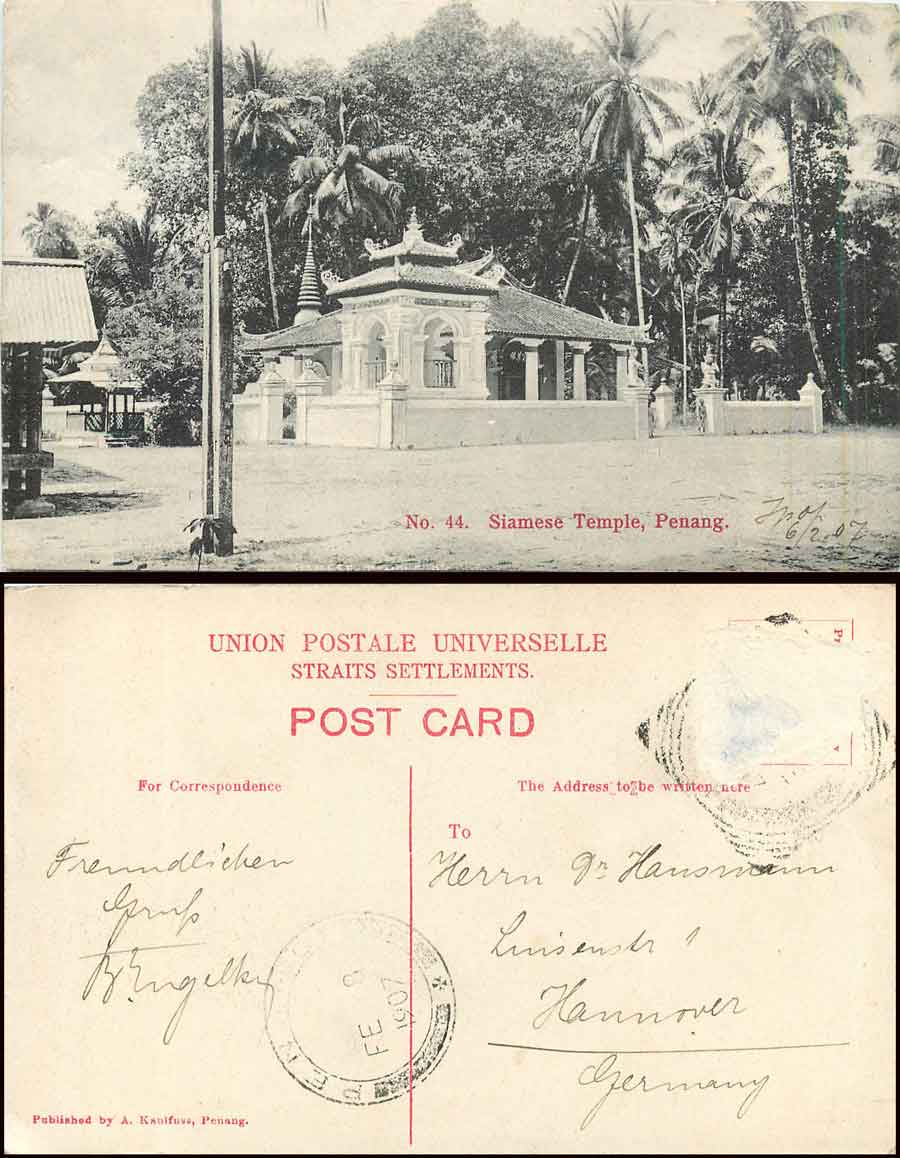 No. 44. Siamese Temple, Penang.
6/2.07
UNION POSTALE UNIVERSELLE
STRAITS SETTLEMENTS.
POST CARD
For Correspondence
The Address to be written here
To
Freundlichen
Gruß
Herrn Dr. Hausmann
Luisenstr 1
Hannover
Germany
PEN
FE 8
1907
Published by A. Kaulfuss, Penang.